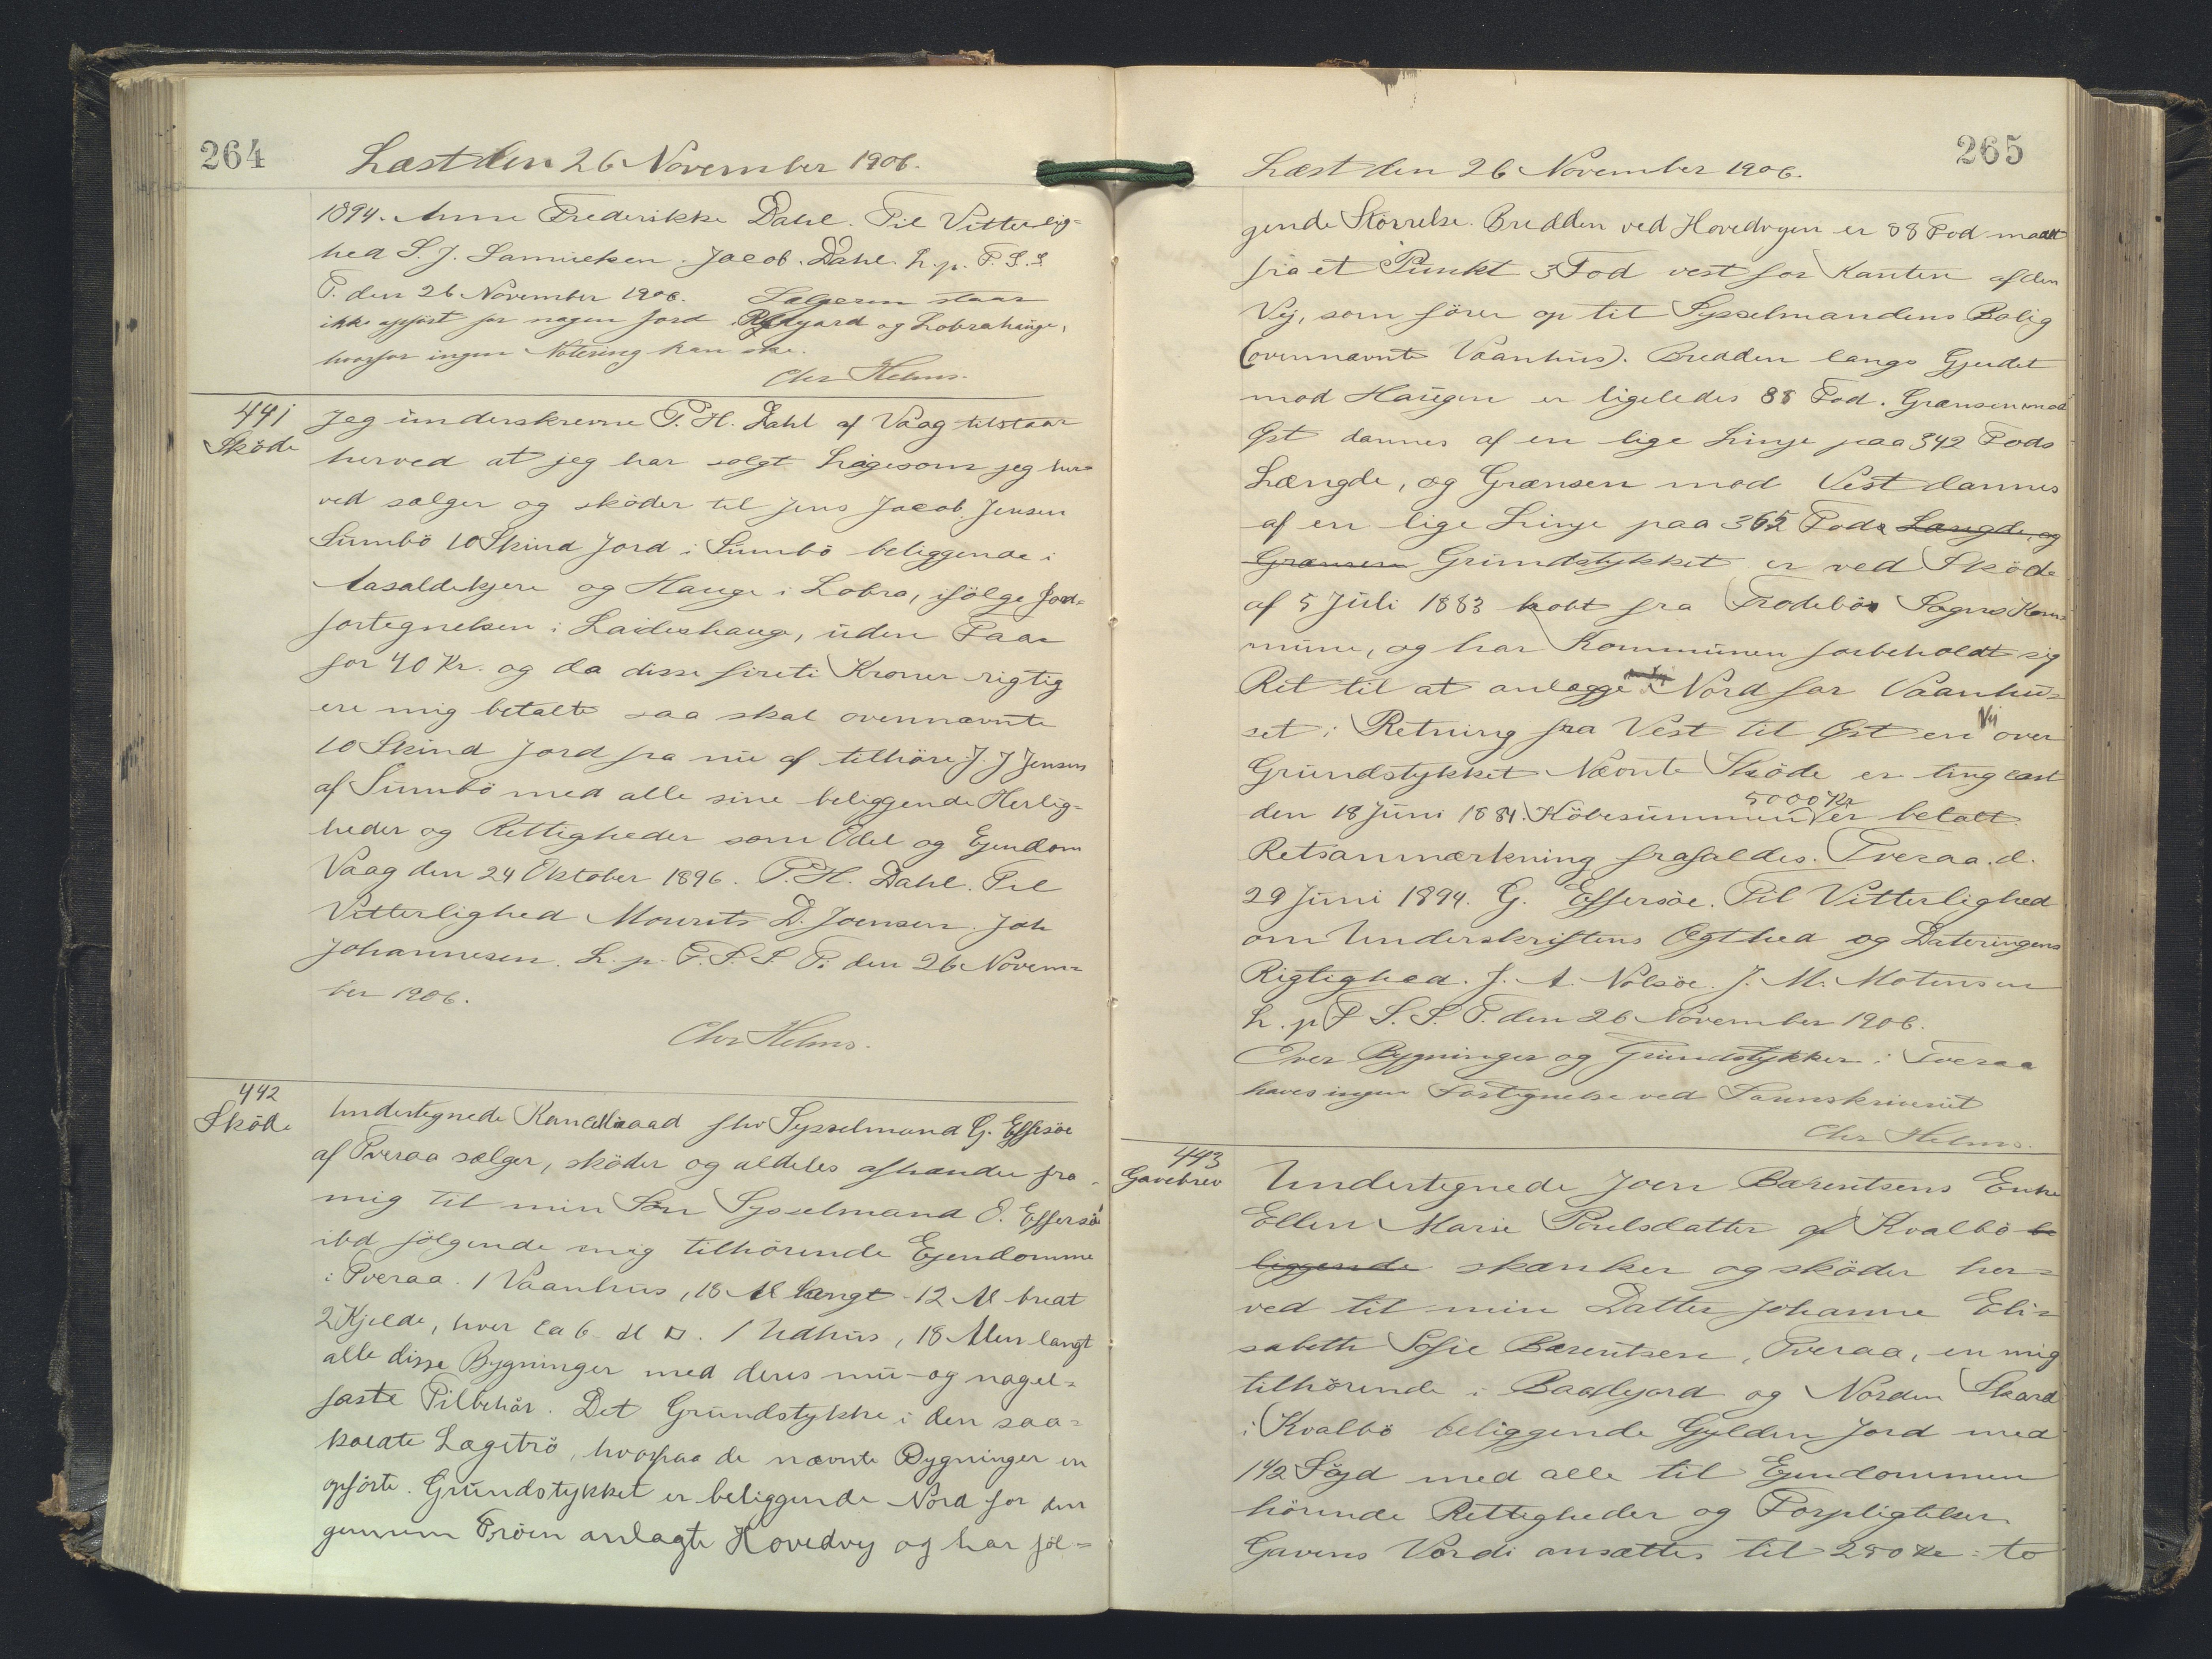 264
Læst den 26 November 1906.
1894. Anne Frederikke Dahl. Til Vitterlig=
hed S. J. Samuelsen. Jacob Dahl. L. p. F. S. S.
T. den 26 November 1906. Sælgeren staar
ikke opført for nogen Jord i og Lobrahauge,
hvorfor ingen Notering kan ske.
Chr Helms.
441
Sköde
Jeg underskrevne P. H. Dahl af Vaag tilstaar
herved at jeg har solgt Ligesom jeg her=
ved sælger og sköder til Jens Jacob Jensen
Sumbö 10 Skind Jord i Sumbö beliggende i
og Hauge i Lobra, ifölge Jord=
fortegnelsen i Laideshauge, uden Faar
for 40 Kr. og da disse fireti Kroner rigtig
ere mig betalte saa skal ovennævnte
10 Skind Jord fra nu af tilhöre J. J Jensen
af Sumbö med alle sine beliggende Herlig=
heder og Rettigheder som Odel og Ejendom
Vaag den 24 Oktober 1896. P. H. Dahl. Til
Vitterlighed Mourits D. Joensen. Joh
Johannesen. L. p. F. S. S. T. den 26 Novem=
ber 1906.
Chr Helms.
442
Sköde
Undertegnede Kancelliraad fhv Sysselmand G. Effersöe
af Tveraa sælger, sköder og aldeles afhænder fra
mig til min Sön Sysselmand O. Effersöe
ibd følgende mig tilhörende Ejendomme
i Tveraa. 1 Vaanhus, 18 Al langt - 12 Al bredt
2 Kjelde, hver ca 6 Al □. 1 Udhus, 18 Alen langt
alle disse Bygninger med deres mu- og nagel=
faste Tilbehör. Det Grundstykke i den saa=
kaldte Lægitrö, hvorpaa de nævnte Bygninger er
opförte. Grundstykket er beliggende Nord for den
gennem Tröen anlagte Hovedvej og har föl=
265
Læst den 26 November 1906.
gende Störrelse. Bredden ved Hovedvejen er 88 Fod maalt
fra et Punkt 3 Fod vest for Kanten af den
Vej, som fører op til Sysselmandens Bolig
(ovennævnte Vaanhus). Bredden langs Gjerdet
mod Haugen er ligeledes 88 Fod. Grænsen mod
Øst dannes af en lige Linje paa 342 Fods
Længde, og Grænsen mod Vest dannes
af en lige Linje paa 365 Fods Længde, og
Grænsen Grundstykket er ved Sköde
af 5 Juli 1883 kobt fra Frodebös Sogns Kom=
mune, og har Kommunen forbeholdt sig
Ret til at anlægge Nord for Vaanhu=
set i Retning fra Vest til Øst en Vej over
Grundstykket Nævnte Sköde er tinglæst
den 18 Juni 1884. Köbesummen 5000 Kr er betalt.
Retsanmærkning frafaldes. Tveraa. d.
29 Juni 1894. G. Effersöe. Til Vitterlighed
om Underskriftens Ægthed og Dateringens
Rigtighed. J. A. Nolsöe. J. M. Motensen
L. p F S. S. T. den 26 November 1906.
Over Bygninger og Grundstykker i Tveraa
haves ingen Fortegnelse ved Sorenskriveriet
Chr Helms.
443
Gavebrev
Undertegnede Joen Barentsens Enke
Ellen Marie Poulsdatter af Kvalbö be
liggende skænker og sköder her=
ved til min Datter Johanne Eli=
sabeth Sofie Barentsen, Tveraa, en mig
tilhörende i og Norden Skard
i Kvalbö beliggende Gylden Jord med
1 1/2 med alle til Ejendommen
hörende Rettigheder og Forpligtelser
Gavens Værdi ansættes til 250 Kr = to